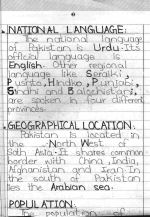 NATIONAL LANGUAGE:
The national language
of Pakistan is Urdu. Its
official language is
English. Other regional
language like Seraiki,
Pushto, Hindko, Punjabi,
Sindhi and Balochistani,
are spoken in four different
provinces.
GEOGRAPHICAL LOCATION:
Pakistan is located in
the North West of
South Asia. It shares common
border with China, India,
Afghanistan and Iran. In
the south of Pakistan
lies the Arabian sea.
POPULATION:
The population of